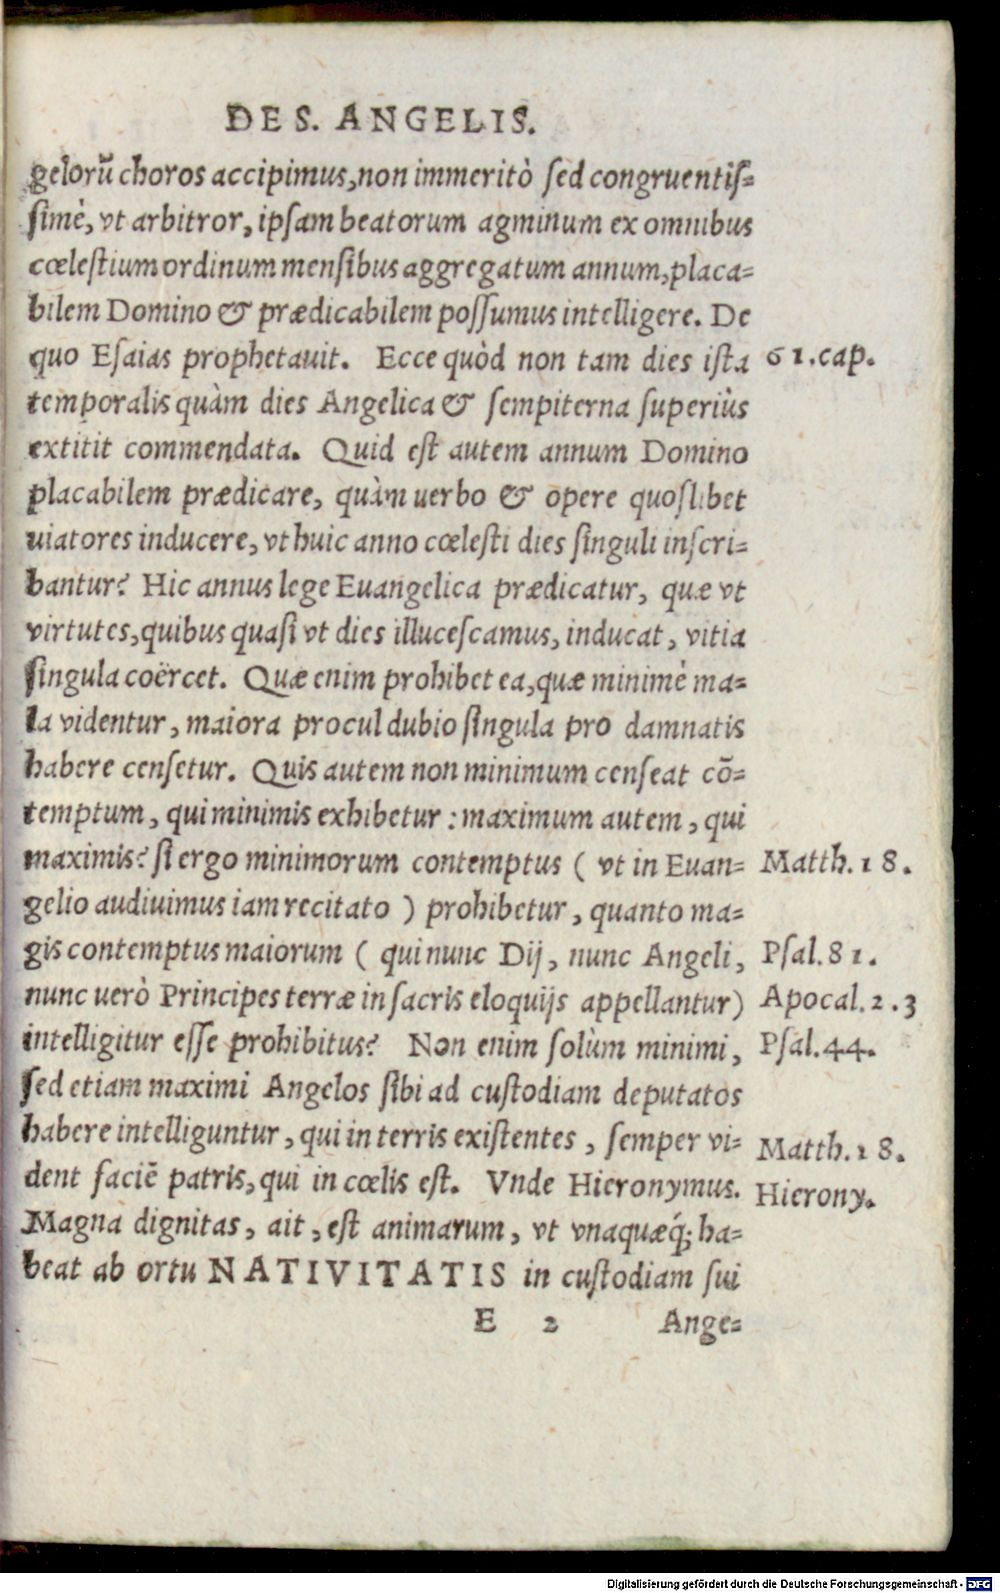 DE S. ANGELIS.
gelorū choros accipimus, non immeritò ſed congruentiſ-
ſimè, vt arbitror, ipſam beatorum agminum ex omnibus
cœleſtium ordinum menſibus aggregatum annum, placa-
bilem Domino & prædicabilem poſſumus intelligere. De
quo Eſaias prophetauit. Ecce quòd non tam dies iſta 61.cap.
temporalis quàm dies Angelica & ſempiterna ſuperiùs
extitit commendata. Quid eſt autem annum Domino
placabilem prædicare, quàm uerbo & opere quoſlibet
uiatores inducere, vt huic anno cœleſti dies ſinguli inſcri-
bantur? Hic annus lege Euangelica prædicatur, quæ vt
virtutes, quibus quaſi vt dies illuceſcamus, inducat, vitia
ſingula coërcet. Quæ enim prohibet ea, quæ minimè ma-
la videntur, maiora procul dubio ſingula pro damnatis
habere cenſetur. Quis autem non minimum cenſeat cō-
temptum, qui minimis exhibetur: maximum autem, qui
maximis? ſi ergo minimorum contemptus ( vt in Euan- Matth.18.
gelio audiuimus iam recitato ) prohibetur, quanto ma-
gis contemptus maiorum ( qui nunc Dij, nunc Angeli, Pſal.81.
nunc uerò Principes terræ in ſacris eloquijs appellantur) Apocal.2.3
intelligitur eſſe prohibitus? Non enim ſolùm minimi, Pſal.44.
ſed etiam maximi Angelos ſibi ad cuſtodiam deputatos
habere intelliguntur, qui in terris exiſtentes, ſemper vi- Matth.18.
dent faciē patris, qui in cœlis eſt. Vnde Hieronymus. Hierony.
Magna dignitas, ait, eſt animarum, vt vnaquæq́; ha-
beat ab ortu NATIVITATIS in cuſtodiam ſui
E 2 Ange-
Digitalisierung gefördert durch die Deutsche Forschungsgemeinschaft - DFG